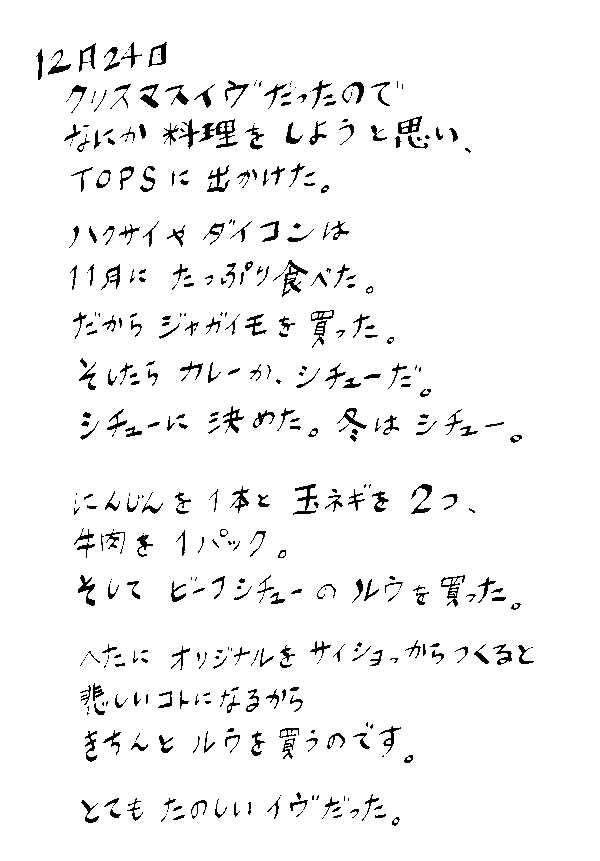 12月24日
クリスマスイヴだったので
なにか 料理を しようと思い、
TOPSに 出かけた。
ハクサイや ダイコンは
11月に たっぷり食べた。
だから ジャガイモを 買った。
そしたら カレーか、シチューだ。
シチューに 決めた。冬は シチュー。
にんじんを 1本と 玉ネギを 2つ、
牛肉を 1パック。
そして ビーフシチューの ルウを買った。
へたに オリジナルを サイショっからつくると
悲しいコトになるから
きちんと ルウを買うのです。
とても たのしい イヴだった。